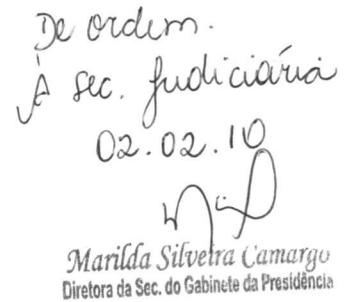 De ordem.
À Sec. Judiciária
02.02.10
Marilda Silveira Camargo
Diretora da Sec. do Gabinete da Presidência